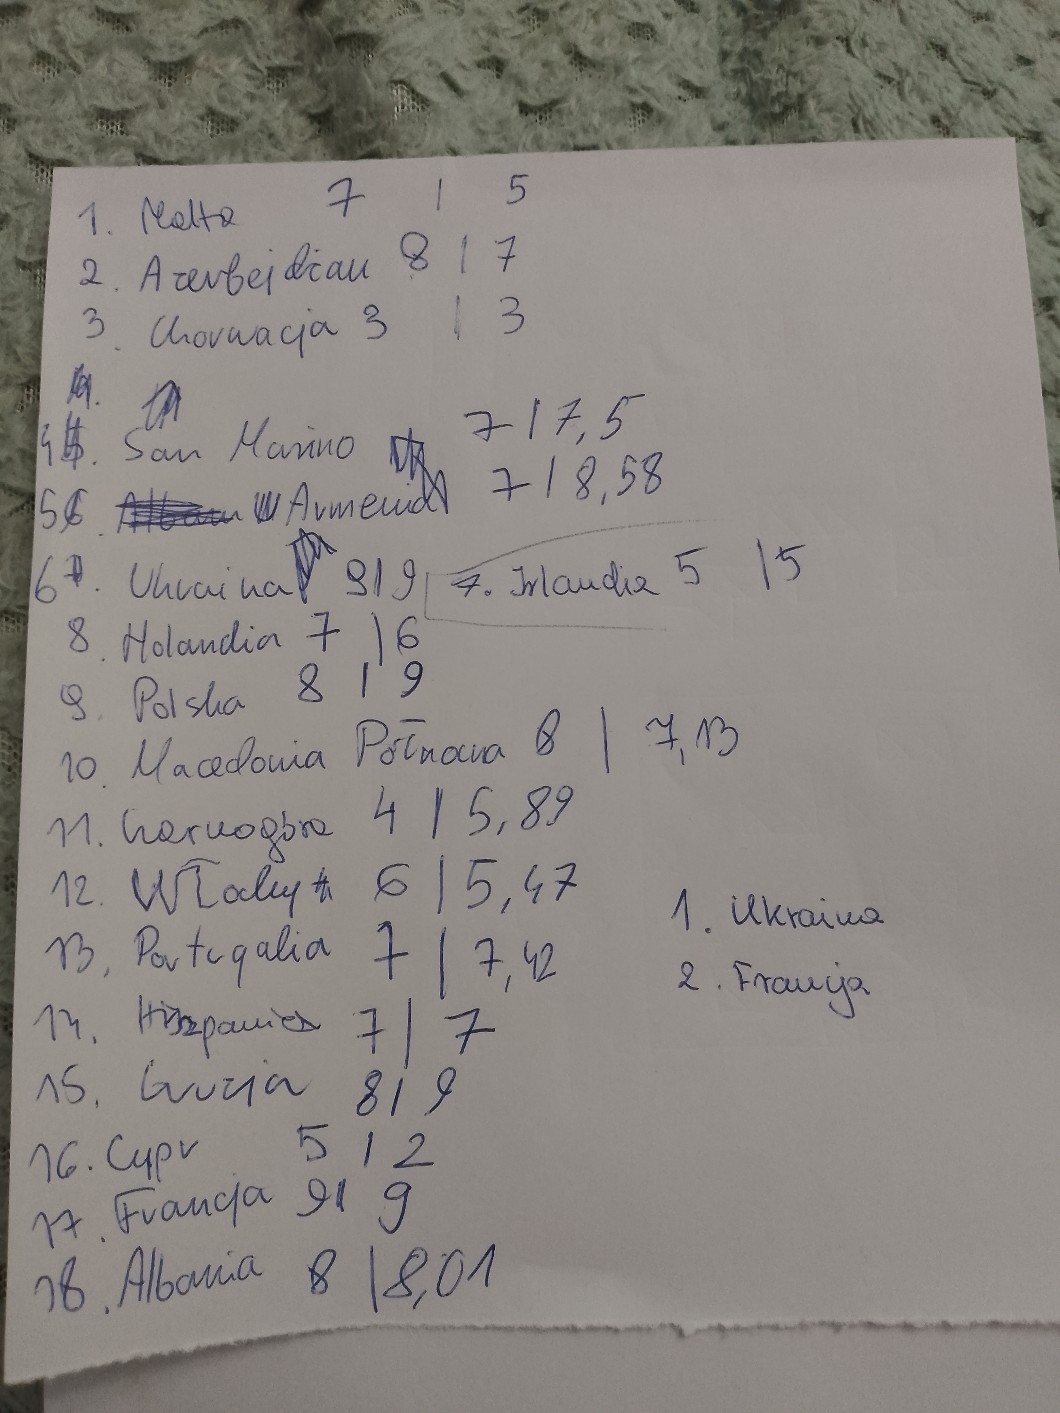 1. Malta 7 | 5
2. Azerbejdżan 8 | 7
3. Chorwacja 3 | 3
4.
4. San Marino 7 | 7,5
5. Armenia 7 | 8,58
6. Ukraina 9 | 9
7. Irlandia 5 | 5
8. Holandia 7 | 6
9. Polska 8 | 9
10. Macedonia Północna 8 | 7,13
11. Czarnogóra 4 | 5,89
12. Włochy 6 | 5,47
13. Portugalia 7 | 7,42
14. Hiszpania 7 | 7
15. Gruzja 8 | 9
16. Cypr 5 | 2
17. Francja 9 | 9
18. Albania 8 | 8,01
1. Ukraina
2. Francja